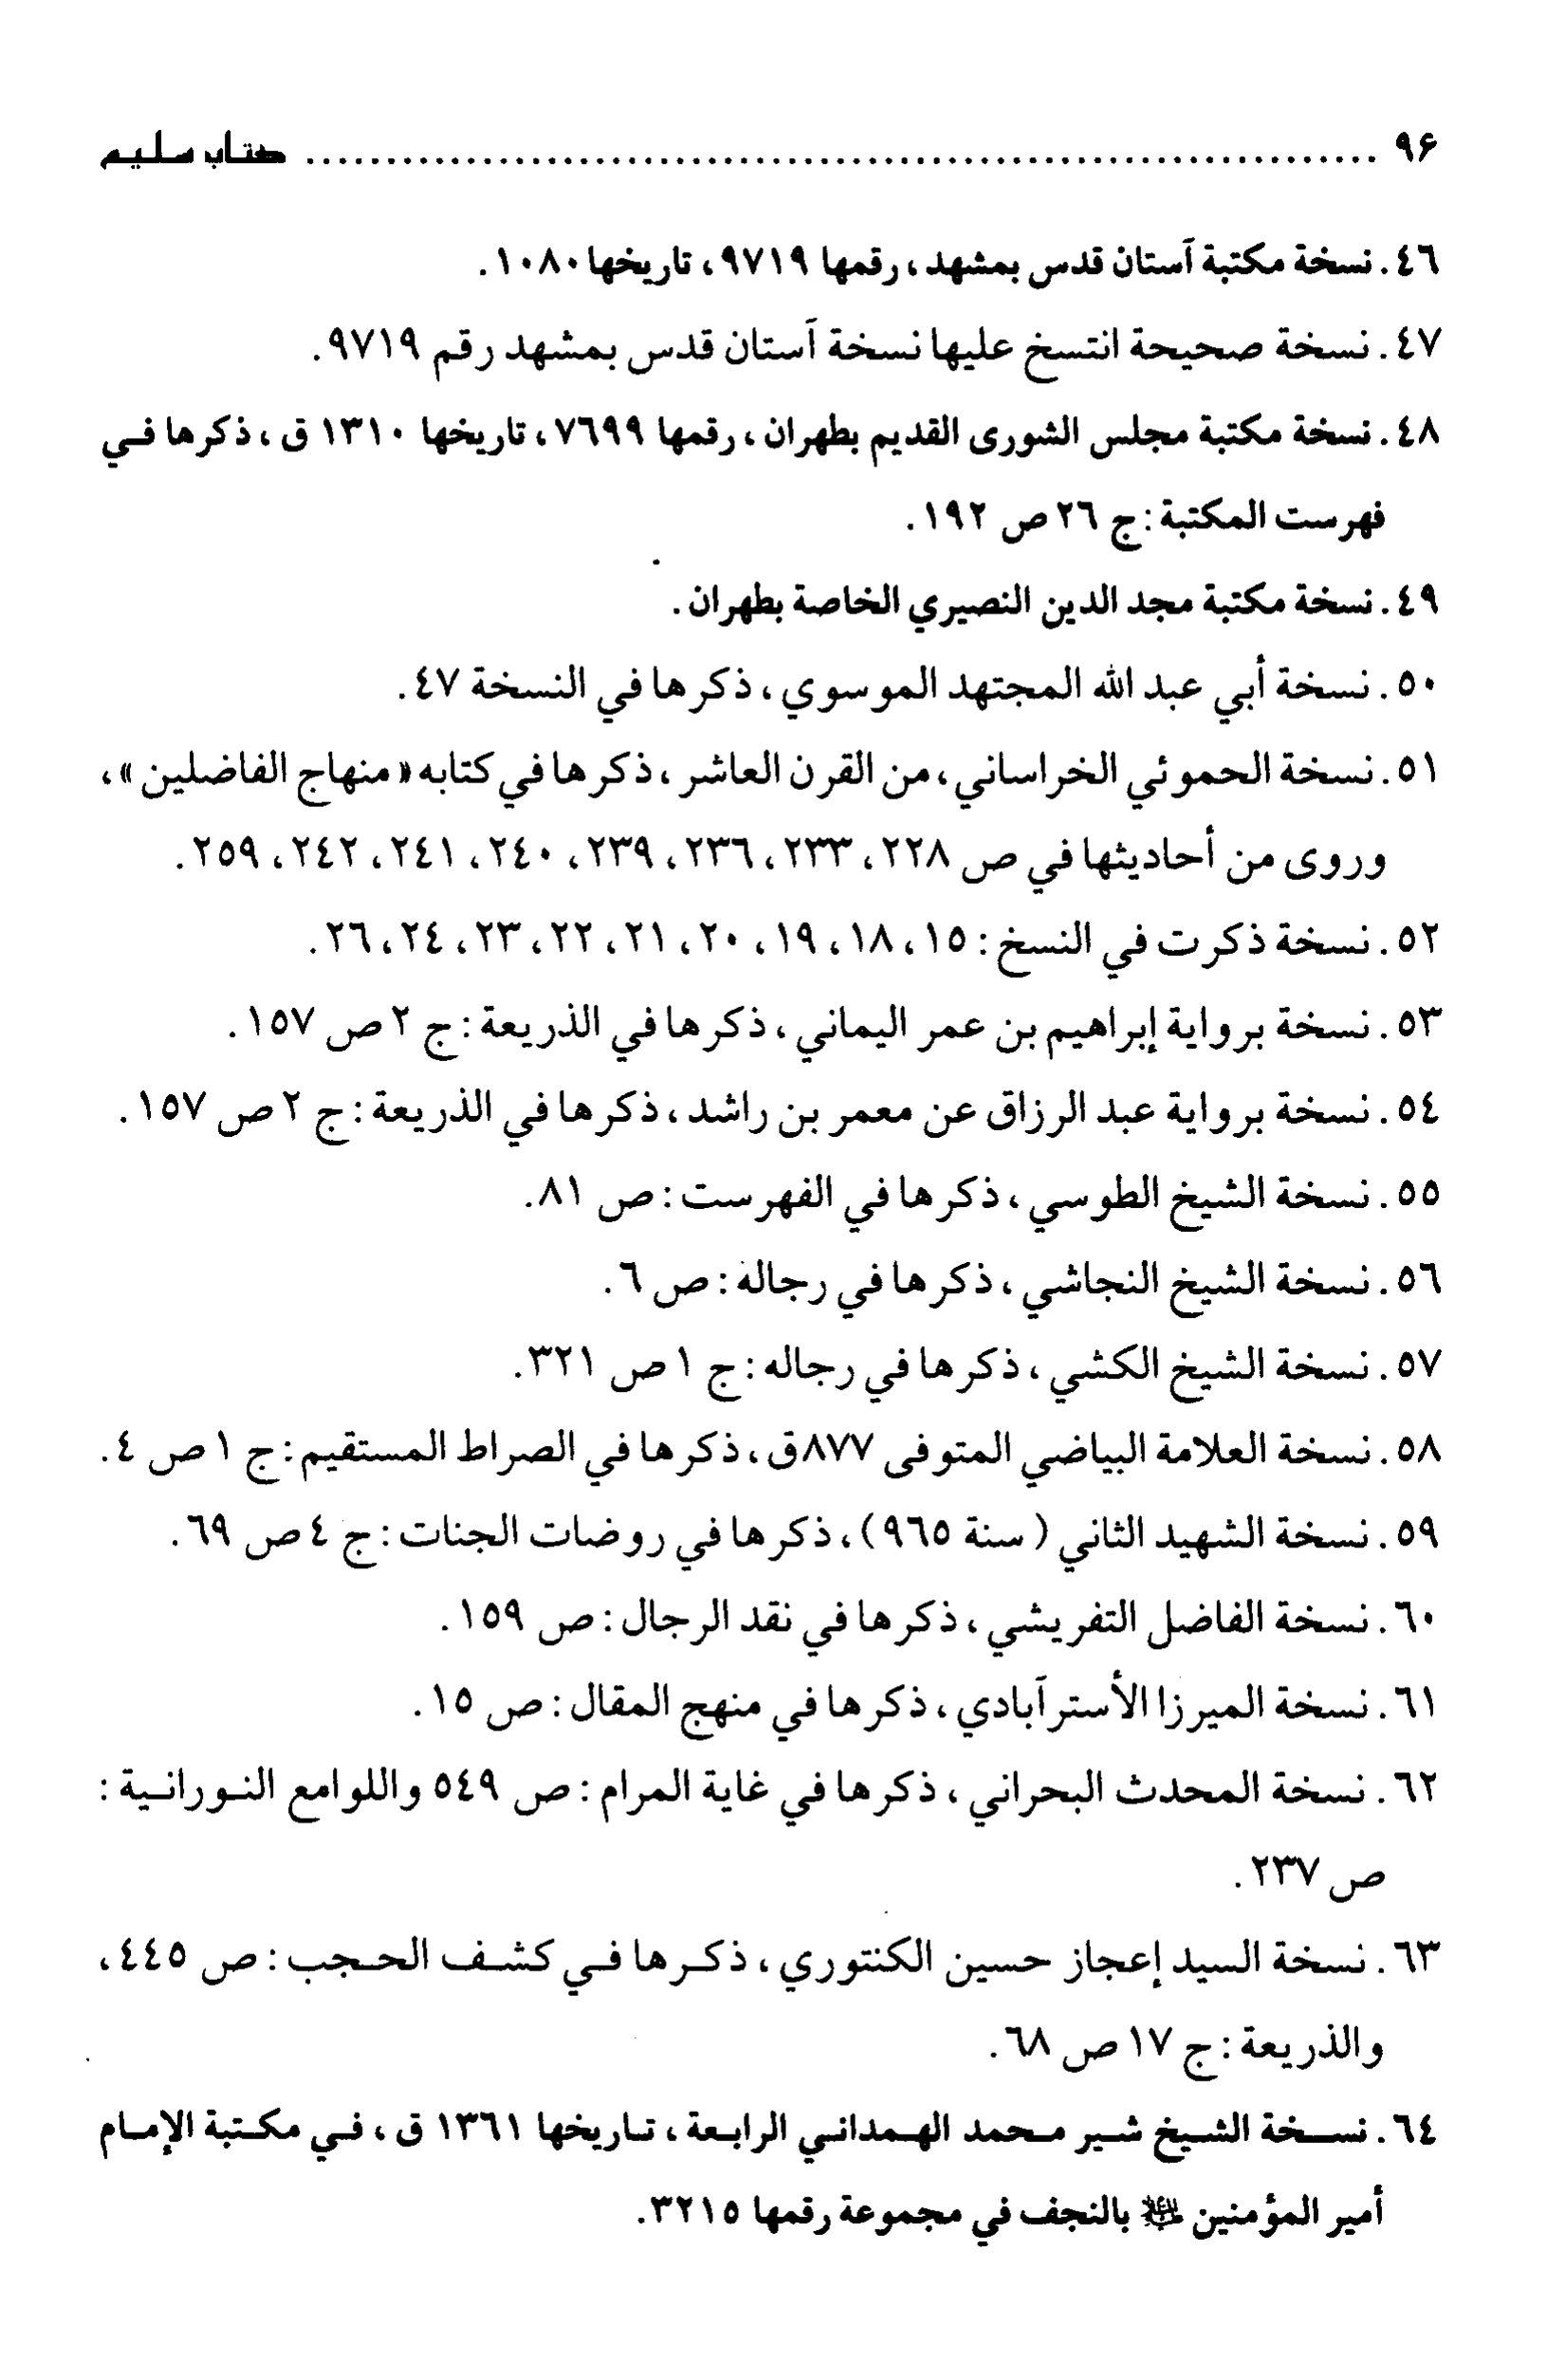 ٩۶ ................................................................ كتاب سليم
٤٦. نسخة مكتبة آستان قدس بمشهد، رقمها ٩٧١٩، تاريخها ١٠٨٠.
٤٧. نسخة صحيحة انتسخ عليها نسخة آستان قدس بمشهد رقم ٩٧١٩.
٤٨. نسخة مكتبة مجلس الشورى القديم بطهران، رقمها ٧٦٩٩، تاريخها ١٣١٠ ق، ذكرها في
فهرست المكتبة: ج ٢٦ ص ١٩٢.
٤٩. نسخة مكتبة مجد الدين النصيري الخاصة بطهران.
٥٠. نسخة أبي عبد الله المجتهد الموسوي، ذكرها في النسخة ٤٧.
٥١. نسخة الحموئي الخراساني، من القرن العاشر، ذكرها في كتابه «منهاج الفاضلين»،
وروى من أحاديثها في ص ٢٢٨، ٢٣٣، ٢٣٦، ٢٣٩، ٢٤٠، ٢٤١، ٢٤٢، ٢٥٩.
٥٢. نسخة ذكرت في النسخ: ١٥، ١٨، ١٩، ٢٠، ٢١، ٢٢، ٢٣، ٢٤، ٢٦.
٥٣. نسخة برواية إبراهيم بن عمر اليماني، ذكرها في الذريعة: ج ٢ ص ١٥٧.
٥٤. نسخة برواية عبد الرزاق عن معمر بن راشد، ذكرها في الذريعة: ج ٢ ص ١٥٧.
٥٥. نسخة الشيخ الطوسي، ذكرها في الفهرست: ص ٨١.
٥٦. نسخة الشيخ النجاشي، ذكرها في رجاله: ص ٦.
٥٧. نسخة الشيخ الكشي، ذكرها في رجاله: ج ١ ص ٣٢١.
٥٨. نسخة العلامة البياضي المتوفى ٨٧٧ق، ذكرها في الصراط المستقيم: ج ١ ص ٤.
٥٩. نسخة الشهيد الثاني (سنة ٩٦٥)، ذكرها في روضات الجنات: ج ٤ ص ٦٩.
٦٠. نسخة الفاضل التفريشي، ذكرها في نقد الرجال: ص ١٥٩.
٦١. نسخة الميرزا الأسترآبادي، ذكرها في منهج المقال: ص ١٥.
٦٢. نسخة المحدث البحراني، ذكرها في غاية المرام: ص ٥٤٩ واللوامع النورانية:
ص ٢٣٧.
٦٣. نسخة السيد إعجاز حسين الكنتوري، ذكرها في كشف الحجب: ص ٤٤٥،
والذريعة: ج ١٧ ص ٦٨.
٦٤. نسخة الشيخ شير محمد الهمداني الرابعة، تاريخها ١٣٦١ ق، في مكتبة الإمام
أمير المؤمنين عليه السلام بالنجف في مجموعة رقمها ٣٢١٥.